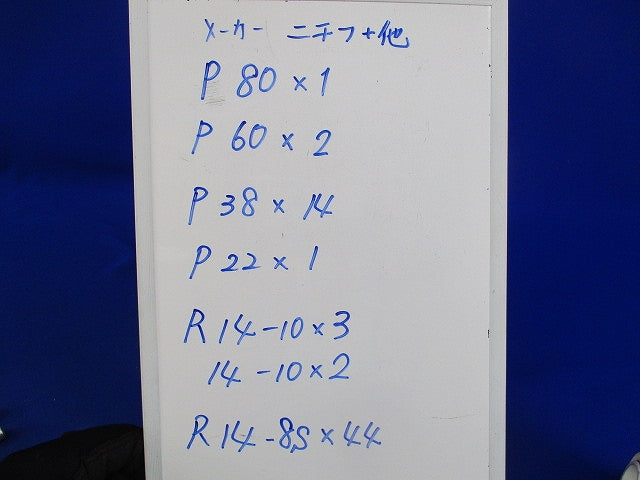 メーカー ニチフ+他
P 80 × 1
P 60 × 2
P 38 × 14
P 22 × 1
R 14-10 × 3
14-10 × 2
R 14-8S × 44